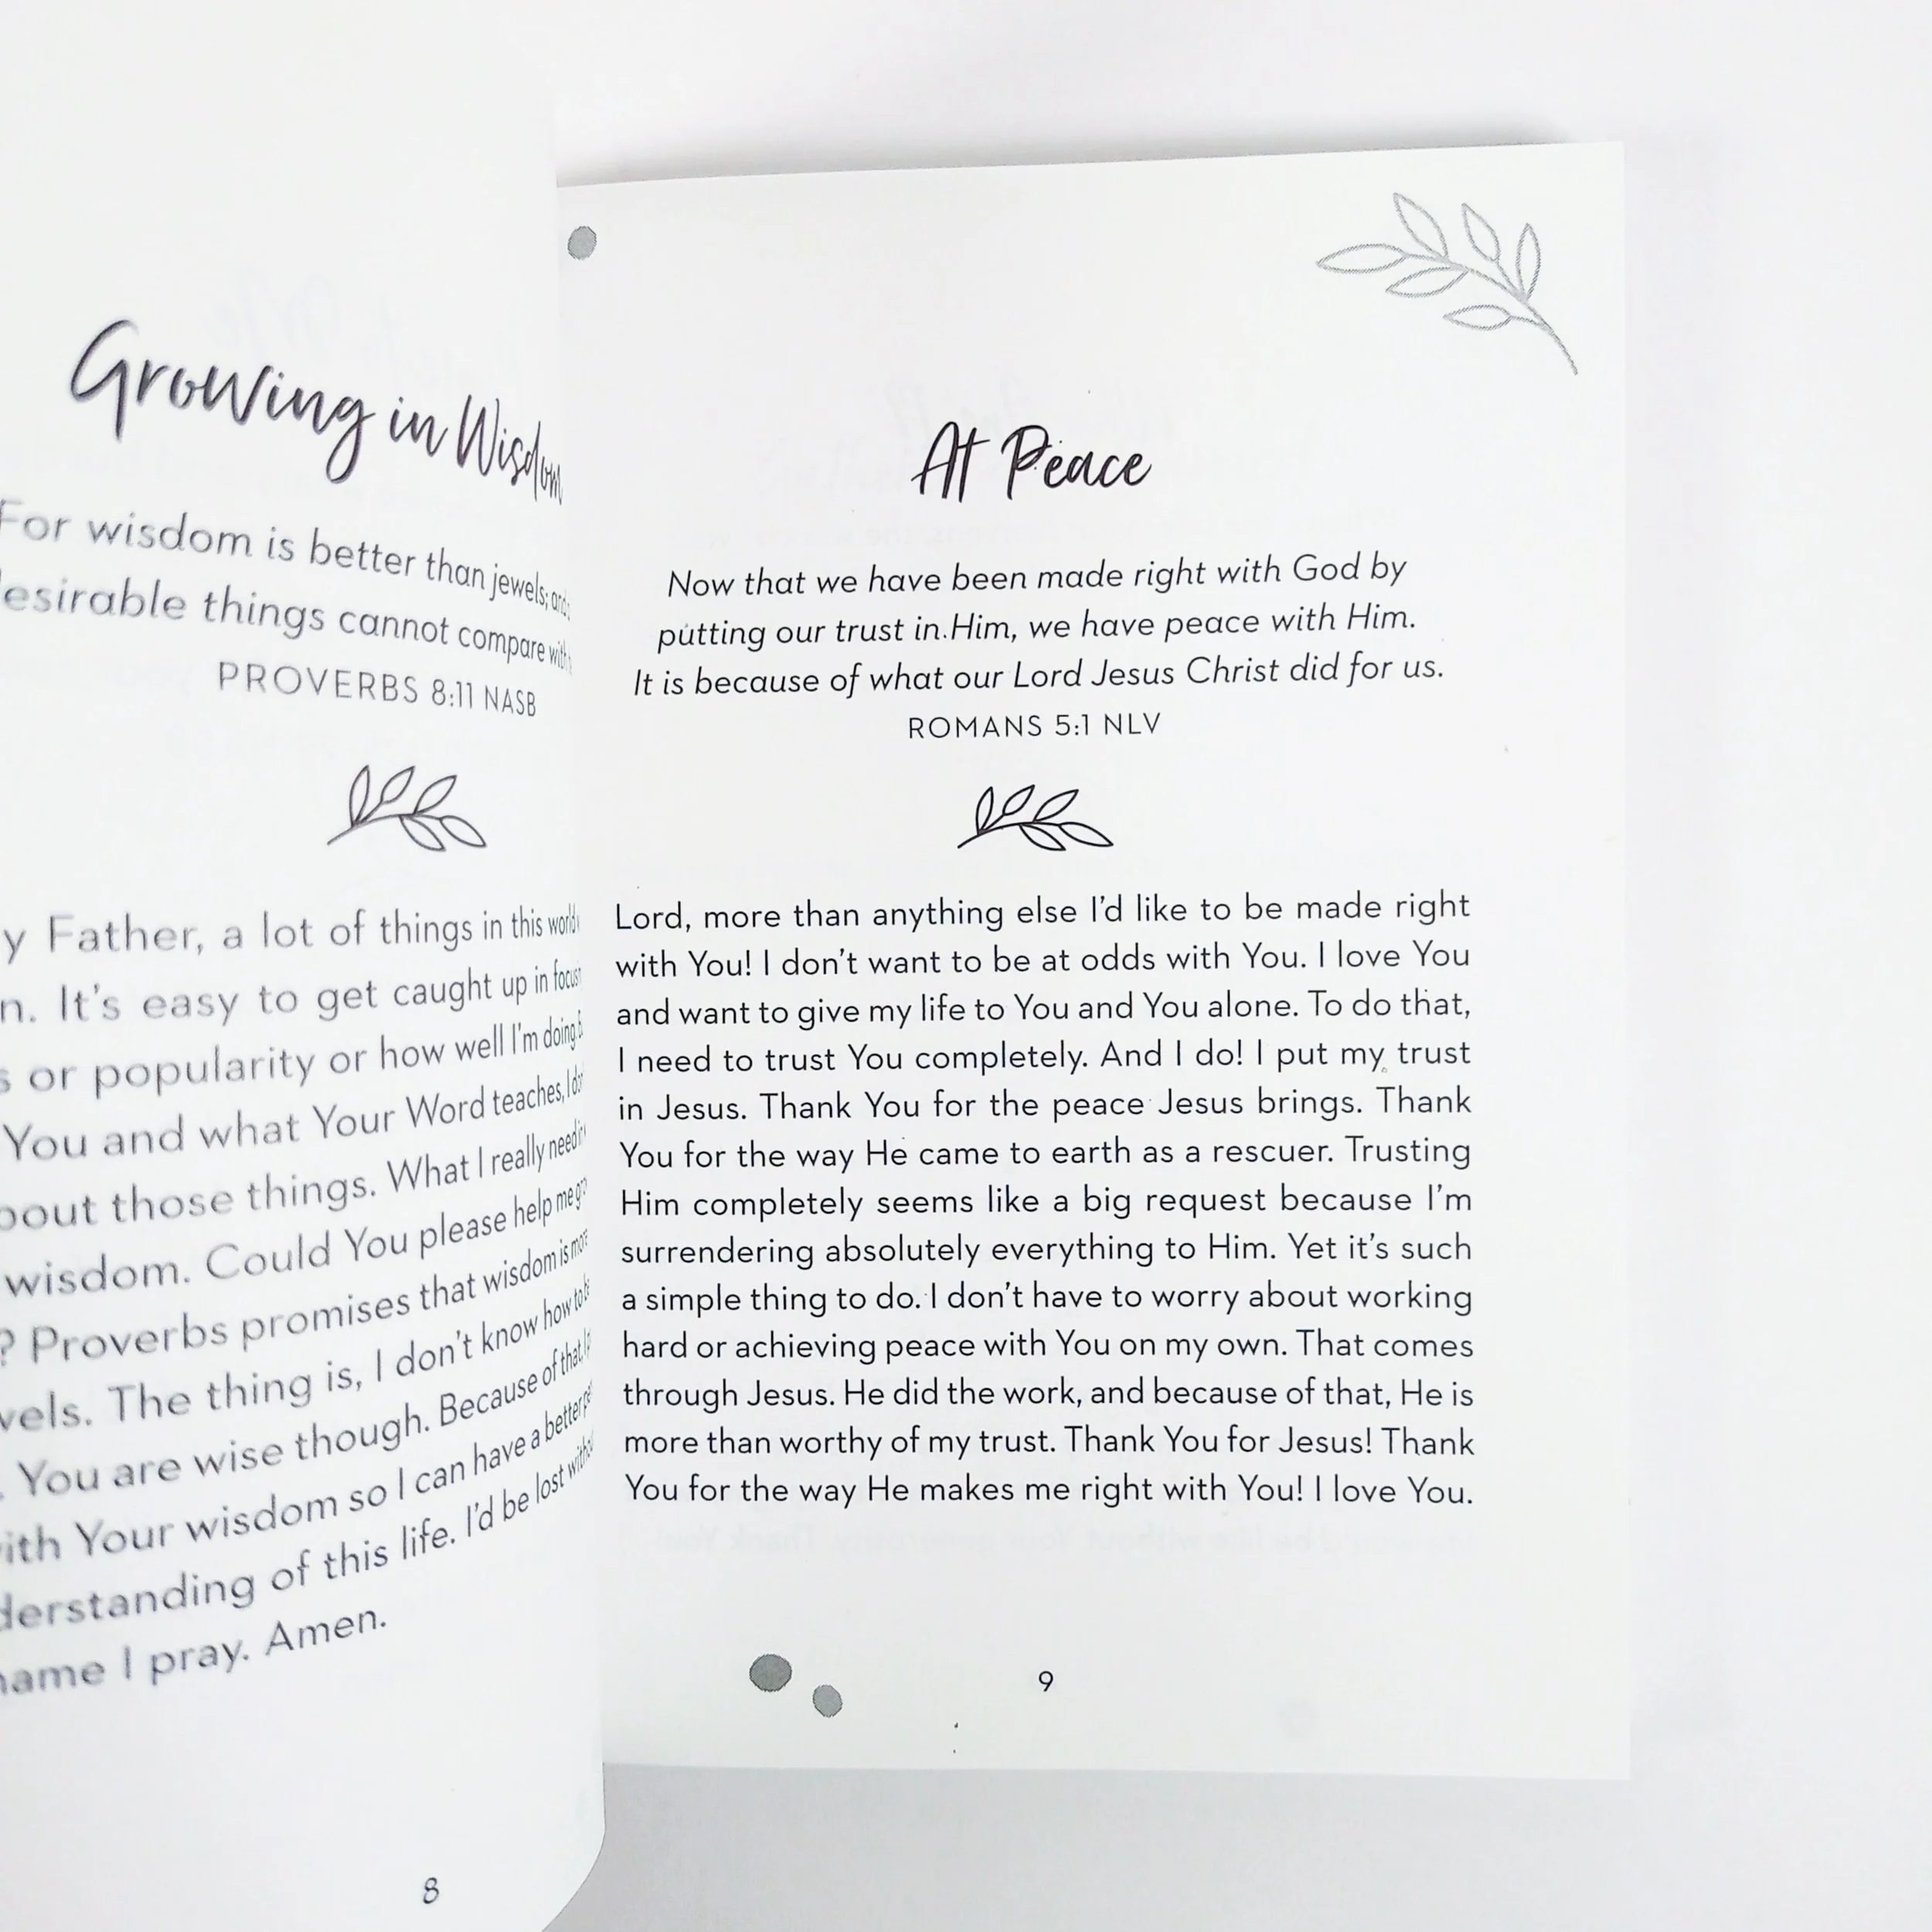 Growing in Wisdom
For wisdom is better than jewels; and
desirable things cannot compare with
PROVERBS 8:11 NASB
Father, a lot of things in this world
It's easy to get caught up in
or popularity or how well I'm doing.
You and what Your Word teaches, I
those things. What I really need
wisdom. Could You please help me
? Proverbs promises that wisdom is more
The thing is, I don't know how to
You are wise though. Because of that, I
Your wisdom so I can have a better
of this life. I'd be lost
I pray. Amen.
8
At Peace
Now that we have been made right with God by
putting our trust in Him, we have peace with Him.
It is because of what our Lord Jesus Christ did for us.
ROMANS 5:1 NLV
Lord, more than anything else I'd like to be made right
with You! I don't want to be at odds with You. I love You
and want to give my life to You and You alone. To do that,
I need to trust You completely. And I do! I put my trust
in Jesus. Thank You for the peace Jesus brings. Thank
You for the way He came to earth as a rescuer. Trusting
Him completely seems like a big request because I'm
surrendering absolutely everything to Him. Yet it's such
a simple thing to do. I don't have to worry about working
hard or achieving peace with You on my own. That comes
through Jesus. He did the work, and because of that, He is
more than worthy of my trust. Thank You for Jesus! Thank
You for the way He makes me right with You! I love You.
9